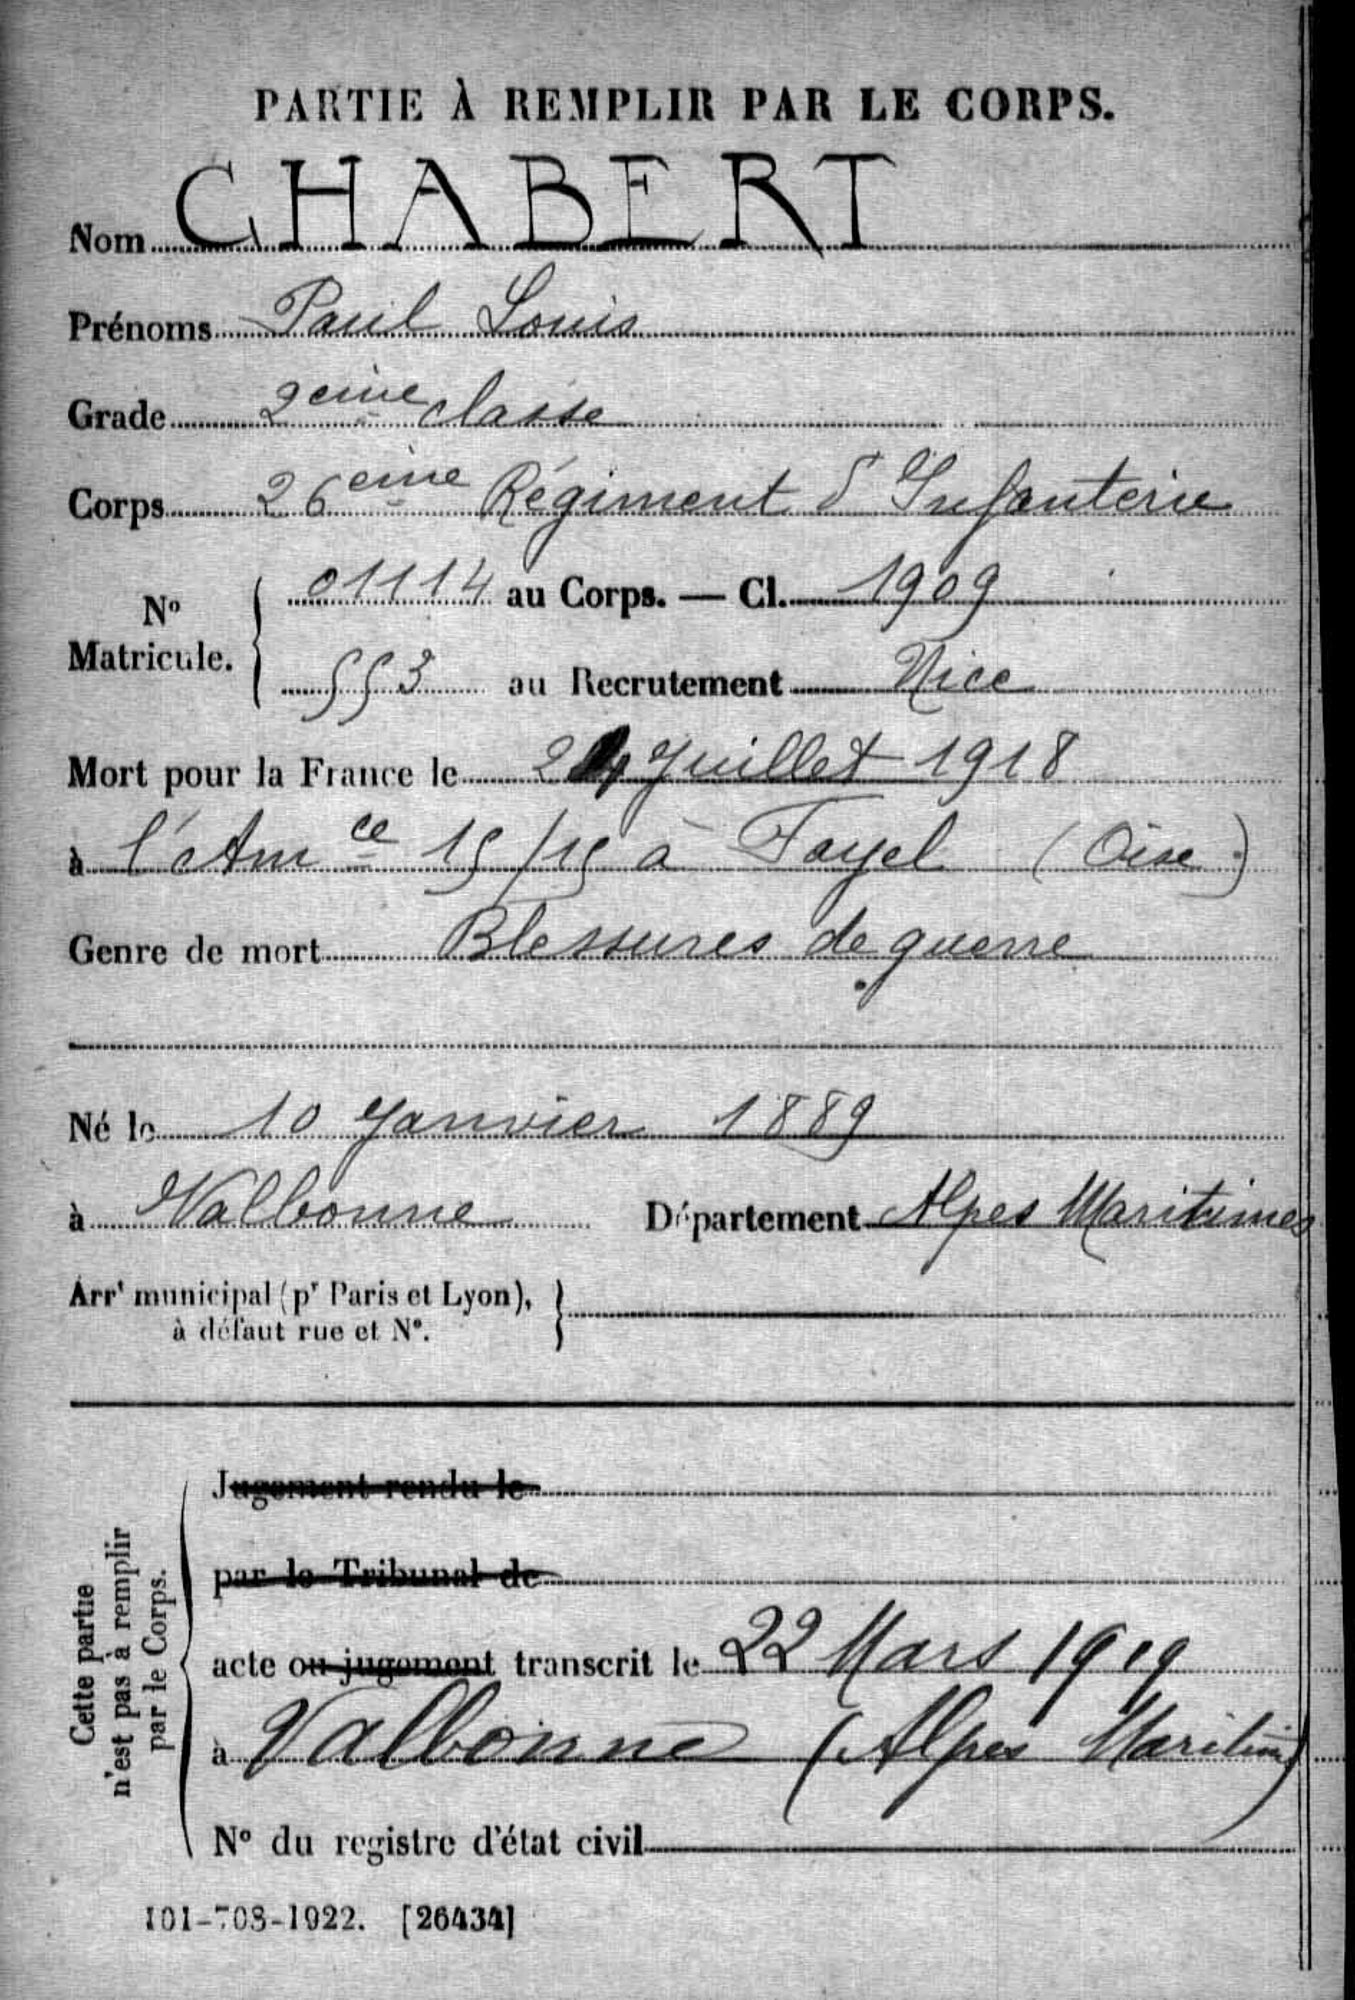 PARTIE À REMPLIR PAR LE CORPS.
Nom CHABERT
Prénoms Paul Louis
Grade 2eme classe
Corps 26eme Régiment d'Infanterie
N° Matricule. 01114 au Corps. — Cl. 1909
553 au Recrutement Nice
Mort pour la France le 24 Juillet 1918
à l'Amce 15/15 à Fayel (Oise)
Genre de mort Blessures de guerre
Né le 10 Janvier 1889
à Valbonne Département Alpes Maritimes
Arrt municipal (pr Paris et Lyon),
à défaut rue et N°.
Cette partie
n'est pas à remplir
par le Corps.
Jugement rendu le
par le Tribunal de
acte ou jugement transcrit le 22 Mars 1919
à Valbonne (Alpes Maritimes)
N° du registre d'état civil
101-708-1922. [26434]